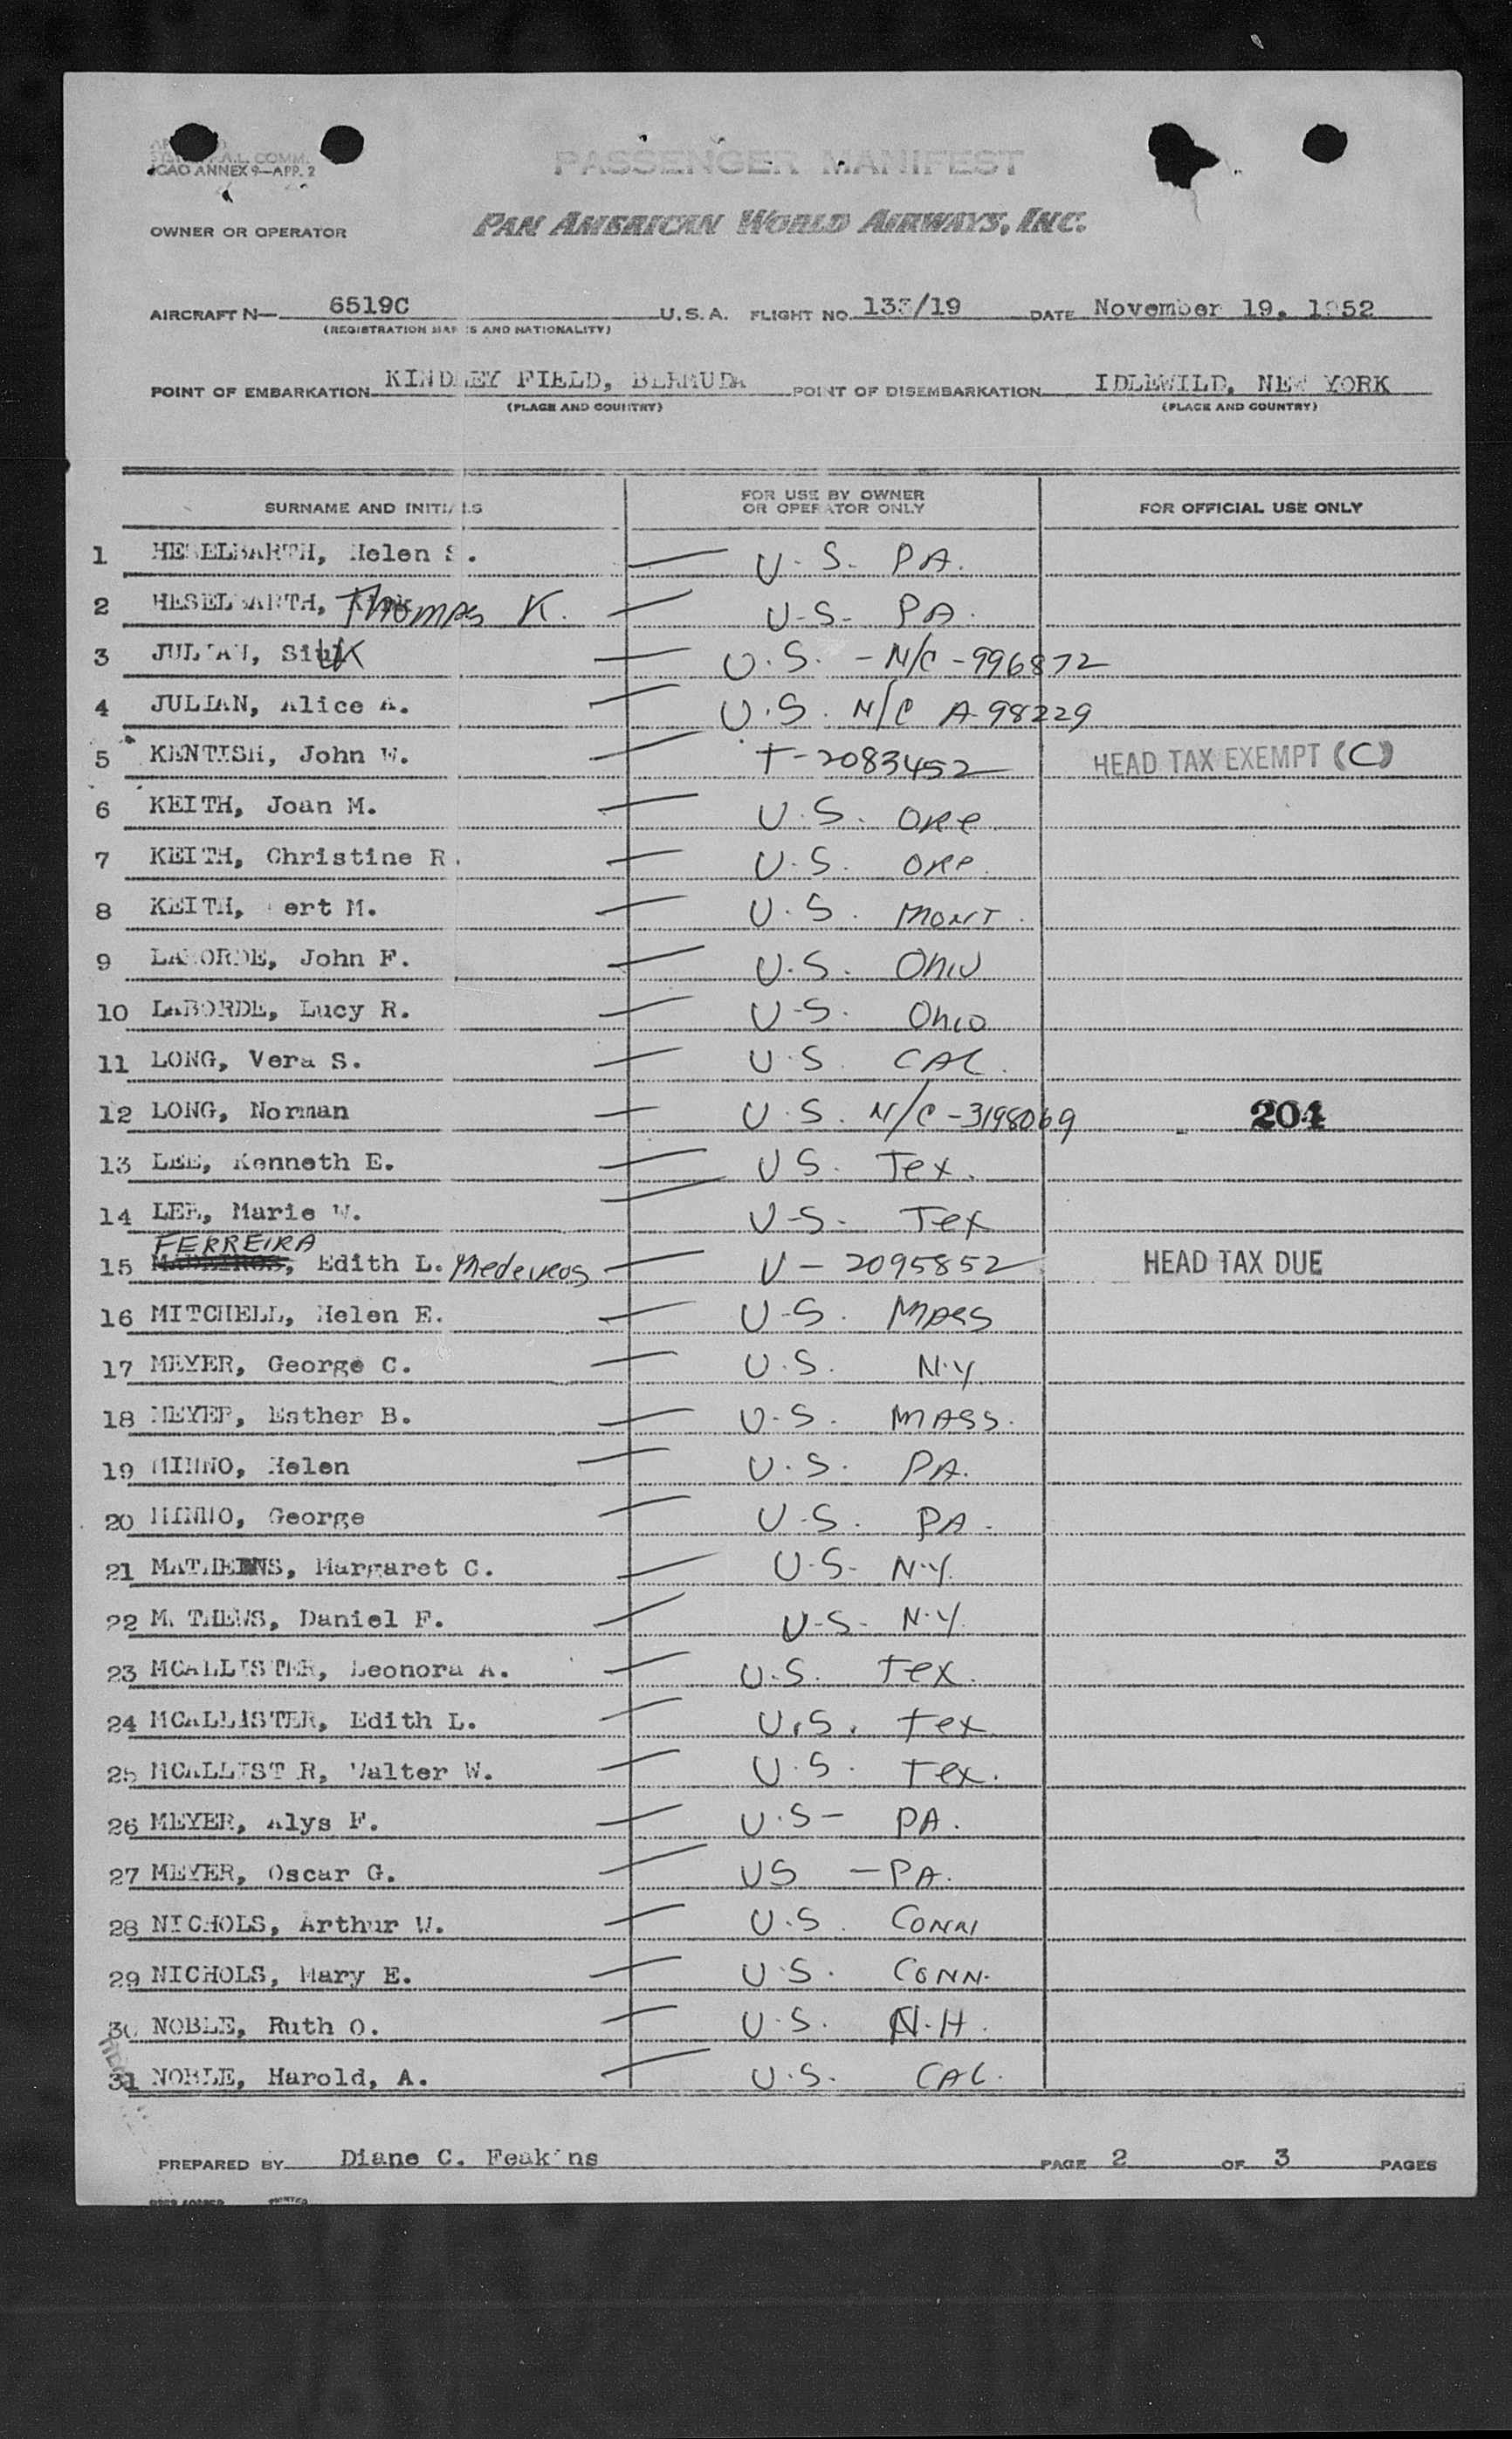 I.C.A.L. COMM.
ICAO ANNEX 9—APP. 2
PASSENGER MANIFEST
OWNER OR OPERATOR PAN AMERICAN WORLD AIRWAYS, INC.
AIRCRAFT N— 6519C U.S.A. FLIGHT NO. 133/19 DATE November 19, 1952
(REGISTRATION MARKS AND NATIONALITY)
POINT OF EMBARKATION KINDLEY FIELD, BERMUDA POINT OF DISEMBARKATION IDLEWILD, NEW YORK
(PLACE AND COUNTRY) (PLACE AND COUNTRY)
SURNAME AND INITIALS FOR USE BY OWNER OR OPERATOR ONLY FOR OFFICIAL USE ONLY
1 HESELBARTH, Helen S. — U.S. PA.
2 HESELBARTH, Thomas K. — U-S- PA.
3 JULIAN, — U.S. - N/C -996872
4 JULIAN, Alice A. — U.S. N/C A-98229
5 KENTISH, John W. — T-2083452 HEAD TAX EXEMPT (C)
6 KEITH, Joan M. — U.S. ORe
7 KEITH, Christine R. — U.S. ORe.
8 KEITH, ert M. — U.S. MONT.
9 LABORDE, John F. — U.S. Ohio
10 LABORDE, Lucy R. — U-S. Ohio
11 LONG, Vera S. — U.S. CAL.
12 LONG, Norman — U.S. N/C -3198069 204
13 LEE, Kenneth E. — US. Tex.
14 LEE, Marie W. — U-S- Tex
FERREIRA
15 MADEIROS, Edith L. Medeiros — V- 2095852 HEAD TAX DUE
16 MITCHELL, Helen E. — U-S. MASS
17 MEYER, George C. — U.S. N.Y.
18 MEYER, Esther B. — U-S. MASS.
19 MINNO, Helen — U.S. PA.
20 MINNO, George — U.S. PA.
21 MATHEWS, Margaret C. — U-S- N.Y.
22 MATHEWS, Daniel F. — U-S- N.Y.
23 MCALLISTER, Leonora A. — U.S. Tex.
24 MCALLISTER, Edith L. — U.S. Tex
25 MCALLISTER, Walter W. — U.S. Tex.
26 MEYER, Alys F. — U.S- PA.
27 MEYER, Oscar G. — US -PA.
28 NICHOLS, Arthur W. — U.S. CONN
29 NICHOLS, Mary E. — U.S. CONN.
30 NOBLE, Ruth O. — U.S. N.H.
31 NOBLE, Harold, A. — U.S. CAL.
PREPARED BY Diane C. Feakins PAGE 2 OF 3 PAGES
PRINTED